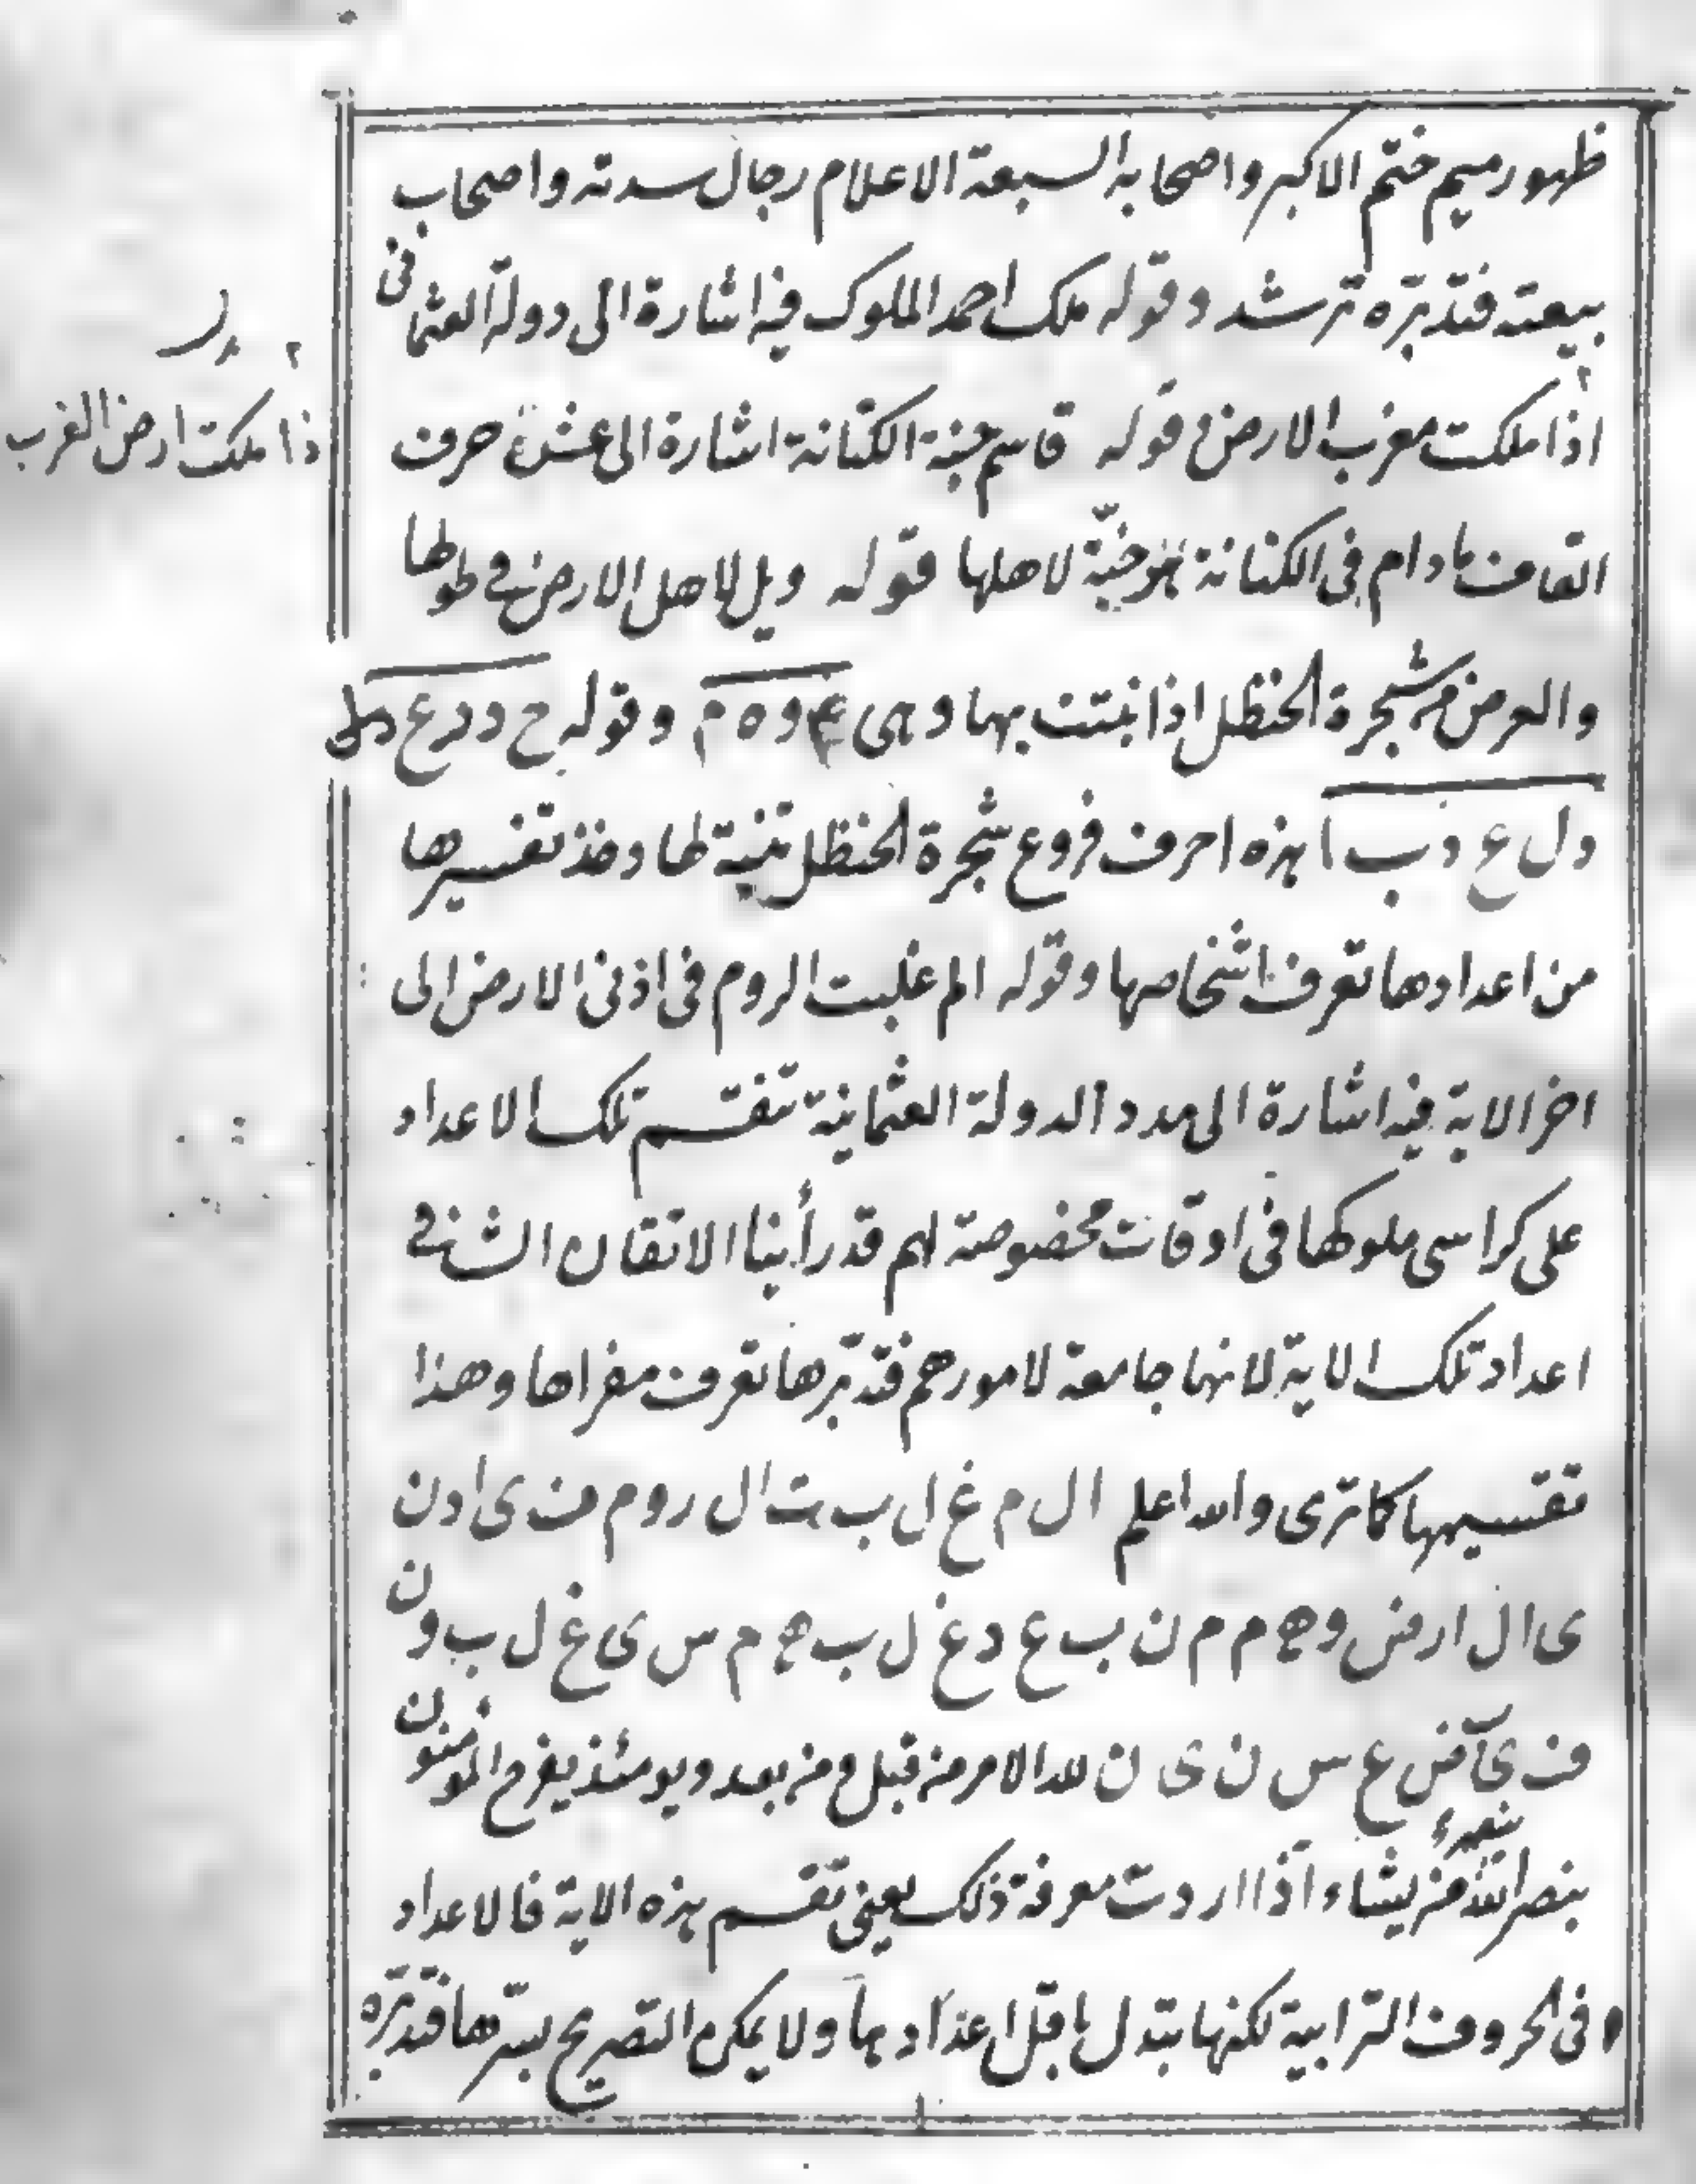 ظهور ميم ختم الاكبر واصحابه السبعة الاعلام رجال سدته واصحاب
بيعته فتدبّره ترشد وقوله ملك احمد الملوك فيه اشارة الى دولة العثمانى
اذا ملكت مغرب الارض وقوله قاسم جنة الكنانة اشارة الى عشق حرف
القاف مادام فى الكنانة جنّة لاهلها قوله ويل لاهل الارض فى طولها
والعرض من شجرة الحنظل اذا نبتت بها وهى وه م وقوله ح ددرع
دل ع دب ا هذه احرف فروع شجرة الحنظل تنبته لها وخذ تفسيرها
من اعدادها تعرف اشخاصها وقوله الم غلبت الروم فى اذنى الارض الى
اخر الاية فيه اشارة الى مدد الدولة العثمانية تنقسم تلك الاعداد
على كراسى ملوكها فى اوقات مخصوصة لهم قد رأينا الاتقان الشن فى
اعداد تلك الاية لانها جامعة لامورهم فتدبّرها تعرف مغزاها وهذا
تقسيمها كاترى والله اعلم ال م غ ل ب ت ال روم ف ى ادن
ى ال ارض وه م م ن ب ع د غ ل ب ه م س ى غ ل ب ون
ف ى ض ع س ن ى ن لله الامر من قبل ومن بعد ويومئذ يفرح المؤمنون
بنصر الله من يشاء اذا اردت معرفة ذلك يعنى تقسم هذه الاية فالاعداد
فى الحروف الترابية لكنها تبدل باقل اعدادها ولا يمكن التصريح بسّرها فتدبّره
اذا ملكت ارض الغرب